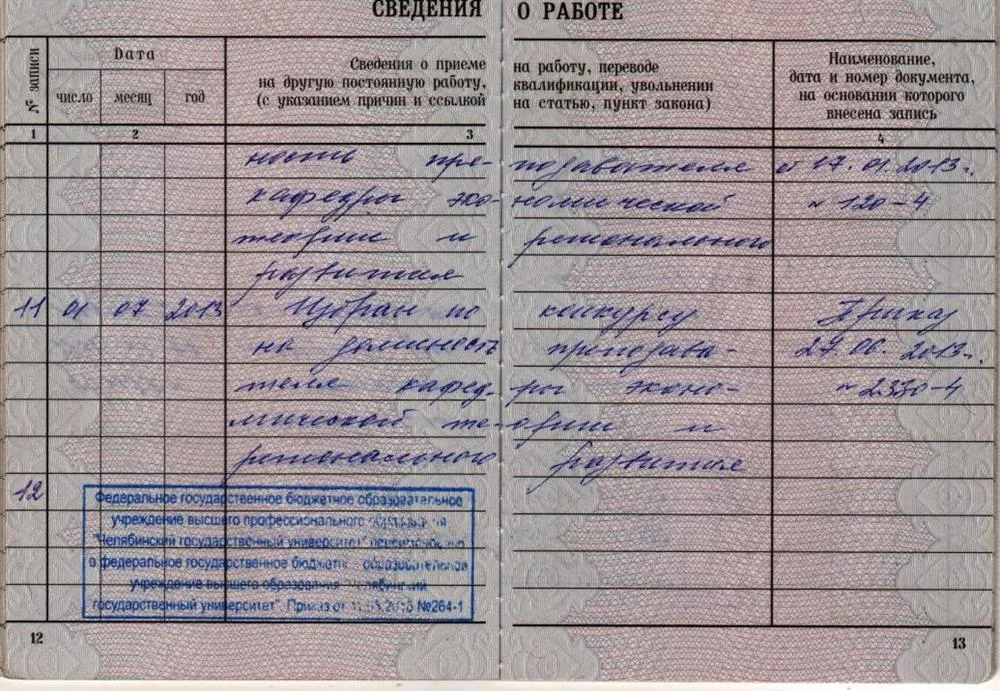 СВЕДЕНИЯ О РАБОТЕ
№ записи
Дата
число месяц год
Сведения о приеме на работу, переводе
на другую постоянную работу, квалификации, увольнении
(с указанием причин и ссылкой на статью, пункт закона)
Наименование,
дата и номер документа,
на основании которого
внесена запись
1 2 3 4
ность пре- подавателя от 17.01.2013г.
кафедры эко- номической № 120-4
теории и регионального
развития
11 01 07 2013 Избран по конкурсу Приказ
на должность преподава- 27.06.2013г.
теля кафед- ры эконо- № 2330-4
мической те- ории и
регионального развития
12
Федеральное государственное бюджетное образовательное
учреждение высшего профессионального образования
"Челябинский государственный университет" переименовано
в федеральное государственное бюджетное образовательное
учреждение высшего образования "Челябинский
государственный университет". Приказ от №264-1
12 13